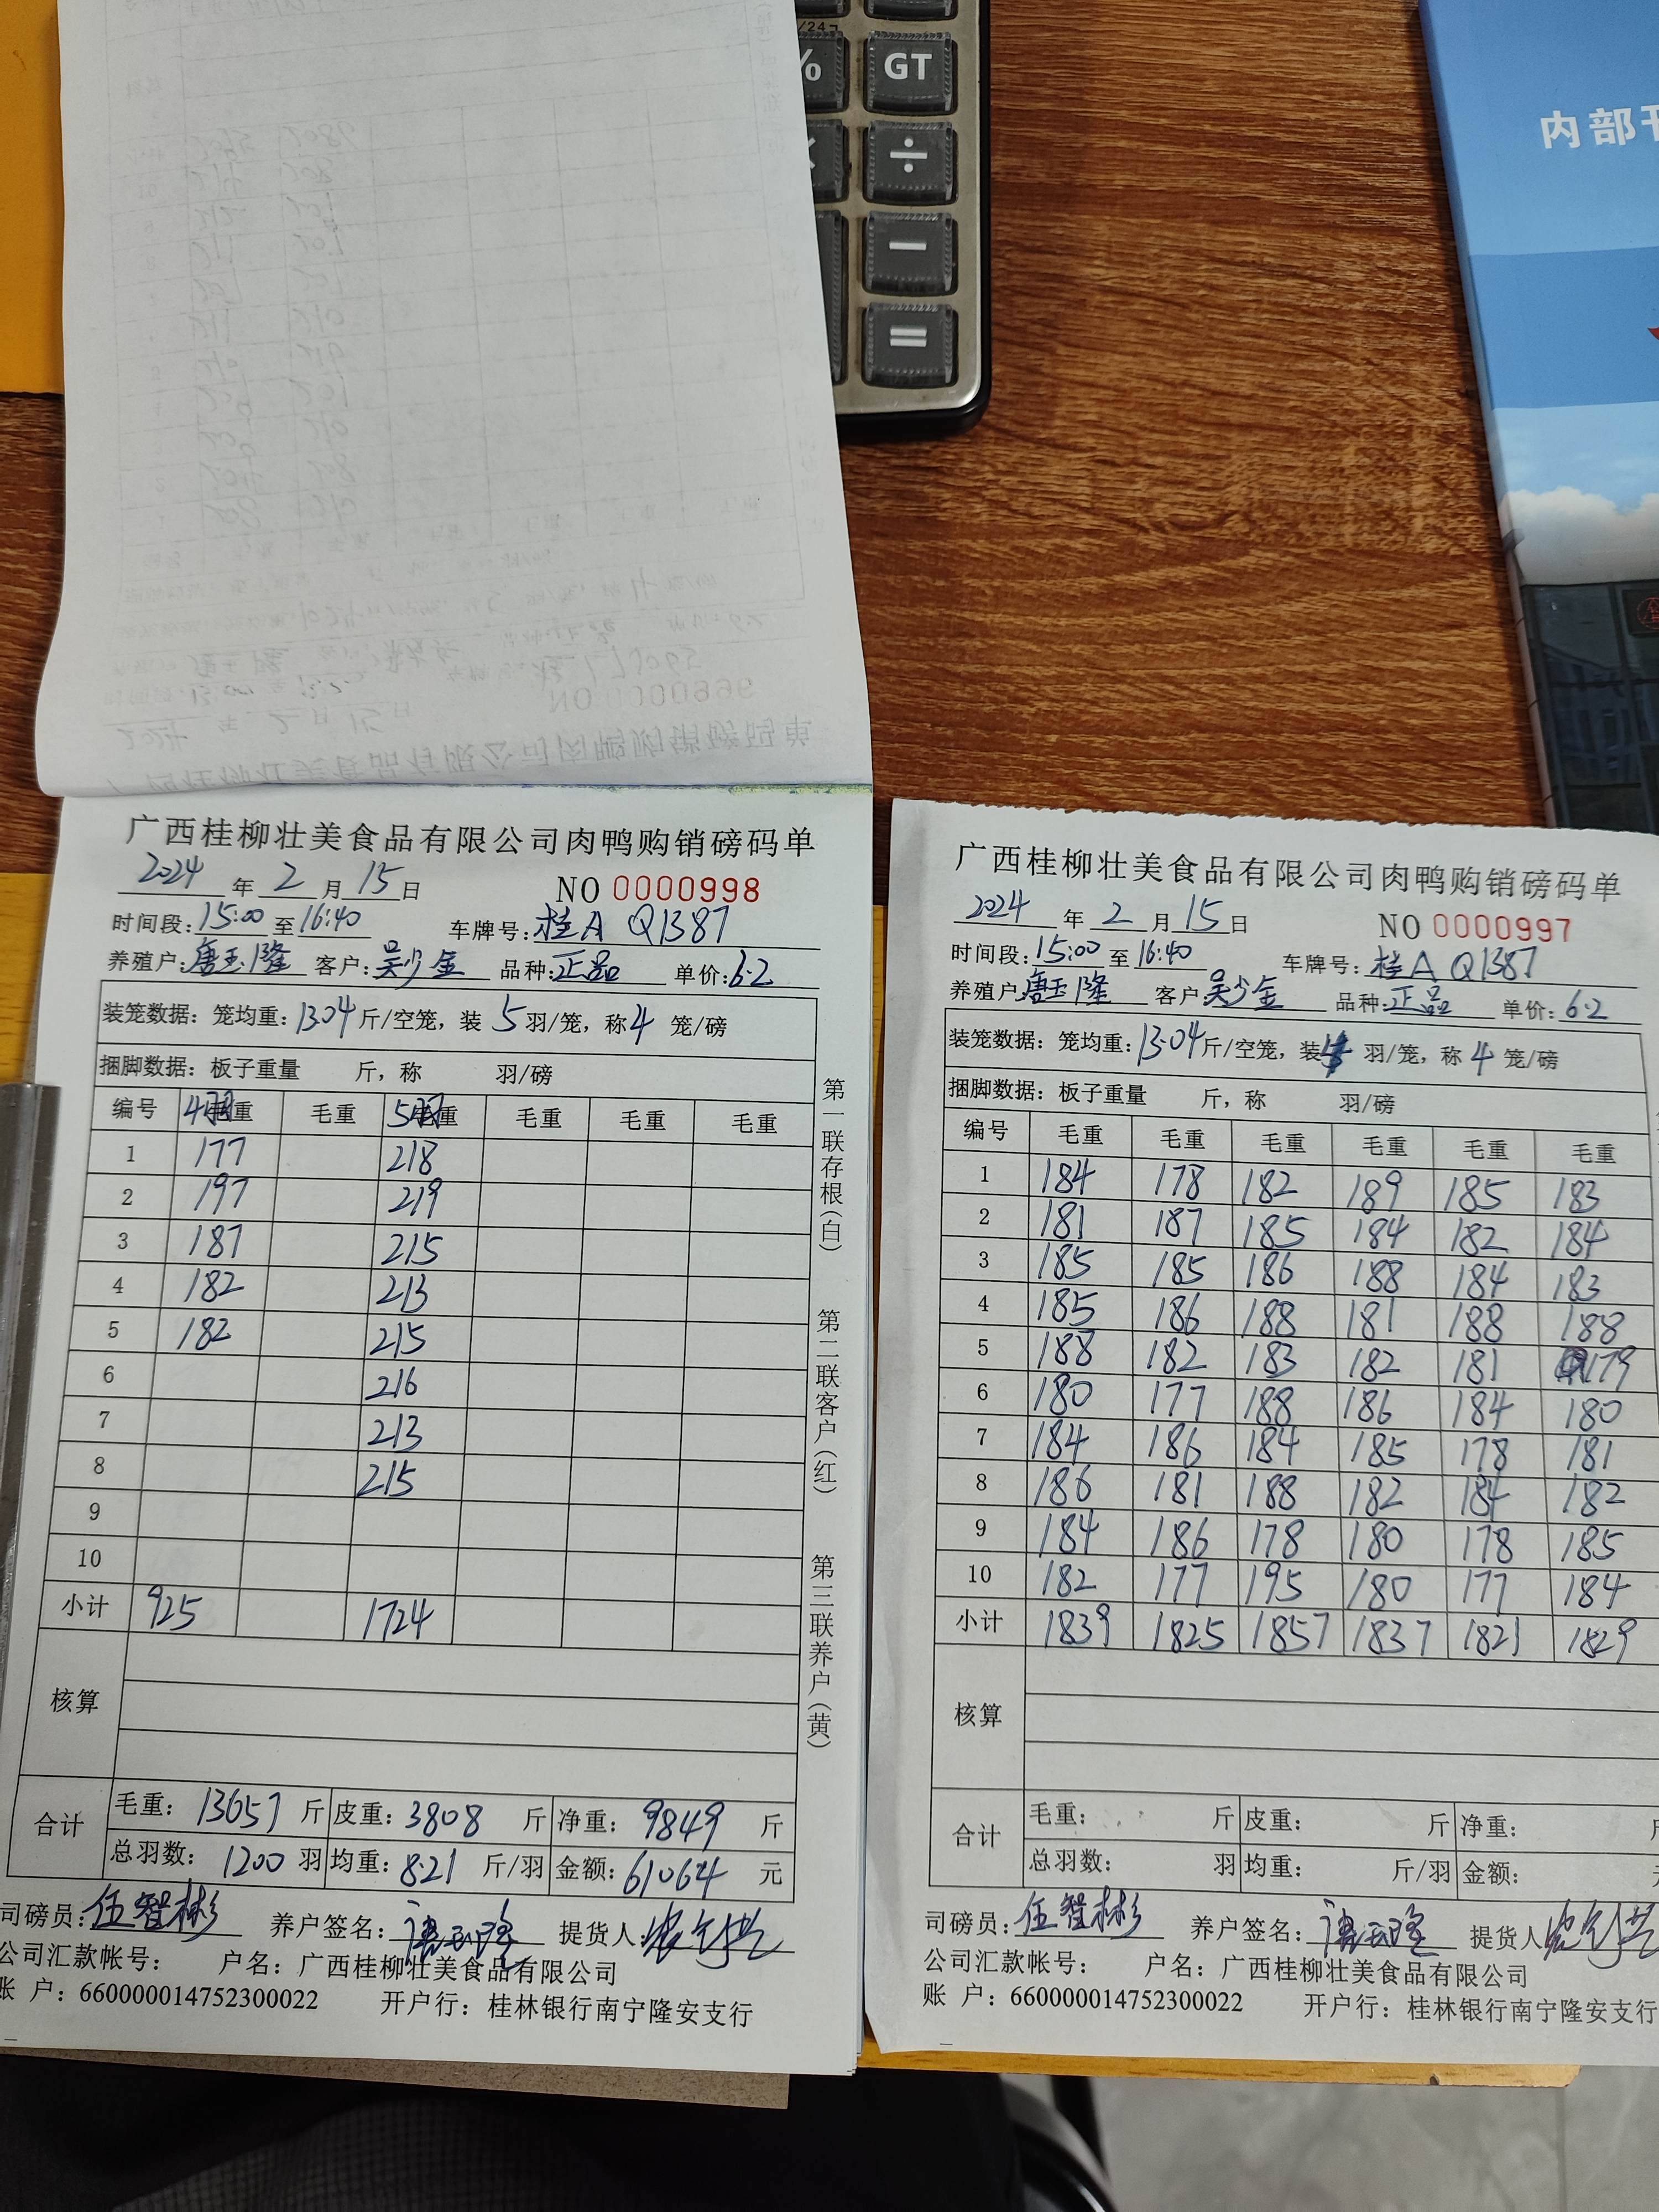 % GT
÷
−
=
内部刊
广西桂柳壮美食品有限公司肉鸭购销磅码单
2024 年 2 月 15 日 NO 0000998
时间段:15:00 至 16:40 车牌号:桂A Q1387
养殖户:唐玉隆 客户:吴少金 品种:正品 单价:6.2
装笼数据:笼均重:13.04斤/空笼,装 5 羽/笼,称4 笼/磅
捆脚数据:板子重量 斤,称 羽/磅
编号 4羽重 毛重 5羽重 毛重 毛重 毛重
1 177 218
2 197 219
3 187 215
4 182 213
5 182 215
6 216
7 213
8 215
9
10
小计 925 1724
核算
合计 毛重:13657 斤 皮重:3808 斤 净重:9849 斤
总羽数:1200 羽 均重:8.21 斤/羽 金额:61064 元
司磅员:伍智彬 养户签名:唐玉隆 提货人:
公司汇款帐号: 户名:广西桂柳壮美食品有限公司
账 户:660000014752300022 开户行:桂林银行南宁隆安支行
第一联存根(白) 第二联客户(红) 第三联养户(黄)
广西桂柳壮美食品有限公司肉鸭购销磅码单
2024 年 2 月 15 日 NO 0000997
时间段:15:00 至 16:40 车牌号:桂A Q1387
养殖户:唐玉隆 客户:吴少金 品种:正品 单价:6.2
装笼数据:笼均重:13.04斤/空笼,装4 羽/笼,称 4 笼/磅
捆脚数据:板子重量 斤,称 羽/磅
编号 毛重 毛重 毛重 毛重 毛重 毛重
1 184 178 182 189 185 183
2 181 187 185 184 182 184
3 185 185 186 188 184 183
4 185 186 188 181 188 188
5 188 182 183 182 181 179
6 180 177 188 186 184 180
7 184 186 184 185 178 181
8 186 181 188 182 184 182
9 184 186 178 180 178 185
10 182 177 195 180 177 184
小计 1839 1825 1857 1837 1821 1829
核算
合计 毛重: 斤 皮重: 斤 净重:
总羽数: 羽 均重: 斤/羽 金额:
司磅员:伍智彬 养户签名:唐玉隆 提货人
公司汇款帐号: 户名:广西桂柳壮美食品有限公司
账 户:660000014752300022 开户行:桂林银行南宁隆安支行